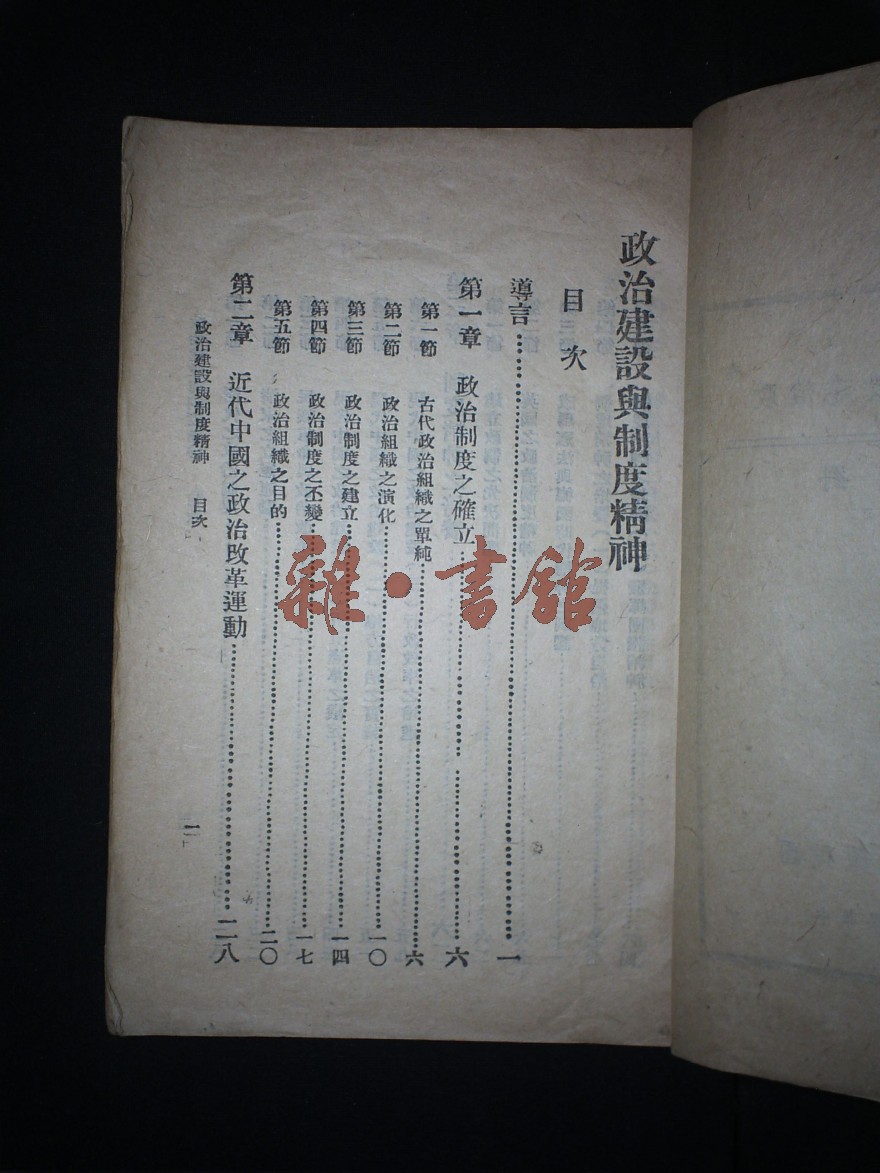 政治建設與制度精神
目次
導言……一
第一章 政治制度之確立……六
第一節 古代政治組織之單純……六
第二節 政治組織之演化……一〇
第三節 政治制度之建立……一四
第四節 政治制度之丕變……一七
第五節 政治組織之目的……二〇
第二章 近代中國之政治改革運動……二八
政治建設與制度精神 目次 一
雜·書館